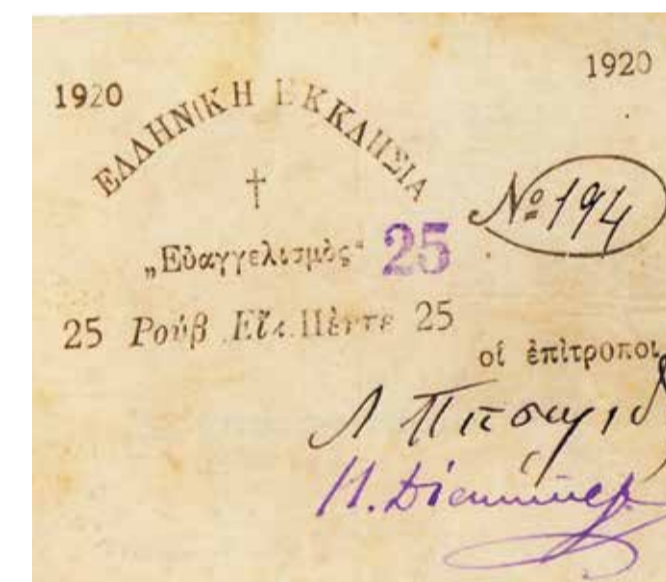 1920 1920
ΕΛΛΗΝΙΚΗ ΕΚΚΛΗΣΙΑ
†
„Εὐαγγελισμὸς“ 25
№ 194
25 Ρούβ. Εἴκ. Πέντε 25
οἱ ἐπίτροποι